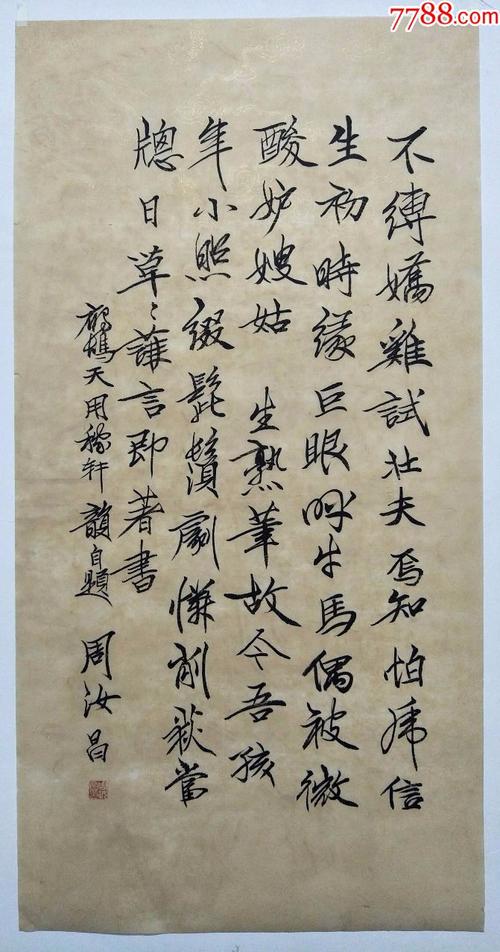 7788.com
不縛嬌雞試壯夫焉知怕虎信
生初時緣巨眼呼牛馬偶被微
酸妒嫂姑 生熟筆故今吾孩
年小照綴髭鬚劇憐削荻當
牕日草〻誰言即著書
鷓鴣天用稼軒韻自題 周汝昌